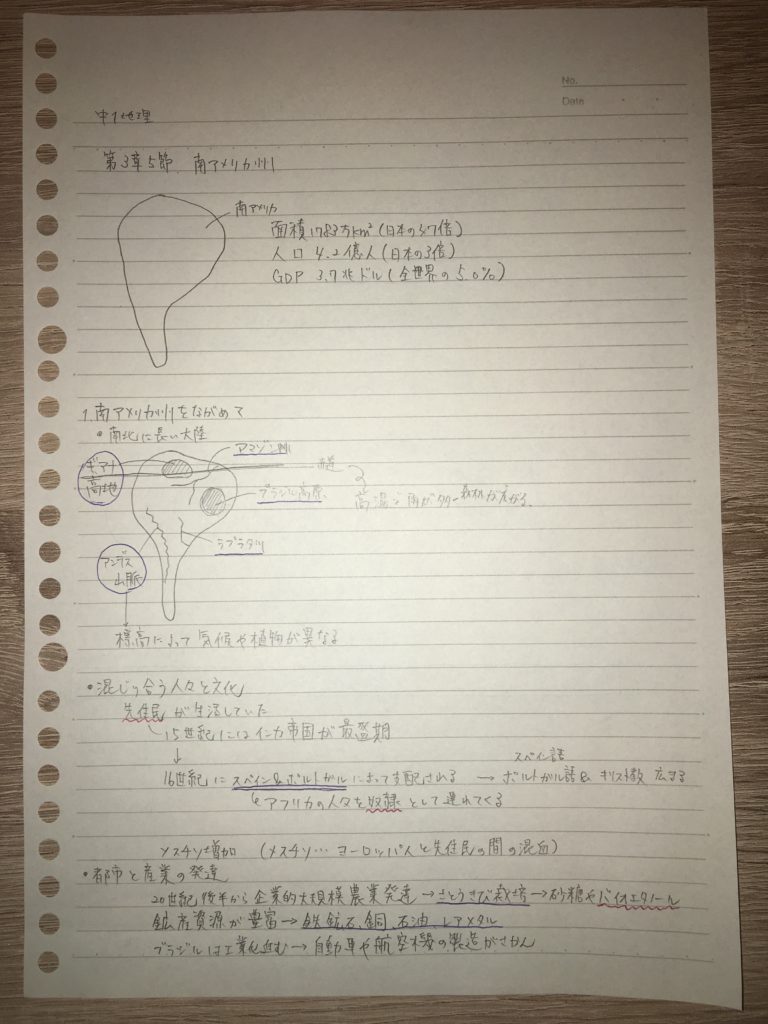 No.
Date
中1地理
第3章5節 南アメリカ州
南アメリカ
面積 1783万km²(日本の37倍)
人口 4.2億人(日本の3倍)
GDP 3.7兆ドル(全世界の5.0%)
1.南アメリカ州をながめて
・南北に長い大陸
アマゾン川
ギアナ高地
赤道
ブラジル高原
高温で雨が多く 森林が広がる
ラプラタ川
アンデス山脈
標高によって気候や植物が異なる
・混じり合う人々と文化
先住民が生活していた
15世紀にはインカ帝国が最盛期
↓
スペイン語
16世紀にスペイン&ポルトガルによって支配される → ポルトガル語& キリスト教 広まる
アフリカの人々を奴隷として連れてくる
メスチソ増加 (メスチソ… ヨーロッパ人と先住民の間の混血)
・都市と産業の発達
20世紀後半から企業的大規模農業発達→さとうきび栽培→砂糖やバイオエタノール
鉱産資源が豊富→鉄鉱石、銅、石油、レアメタル
ブラジルは工業化進む→自動車や航空機の製造がさかん